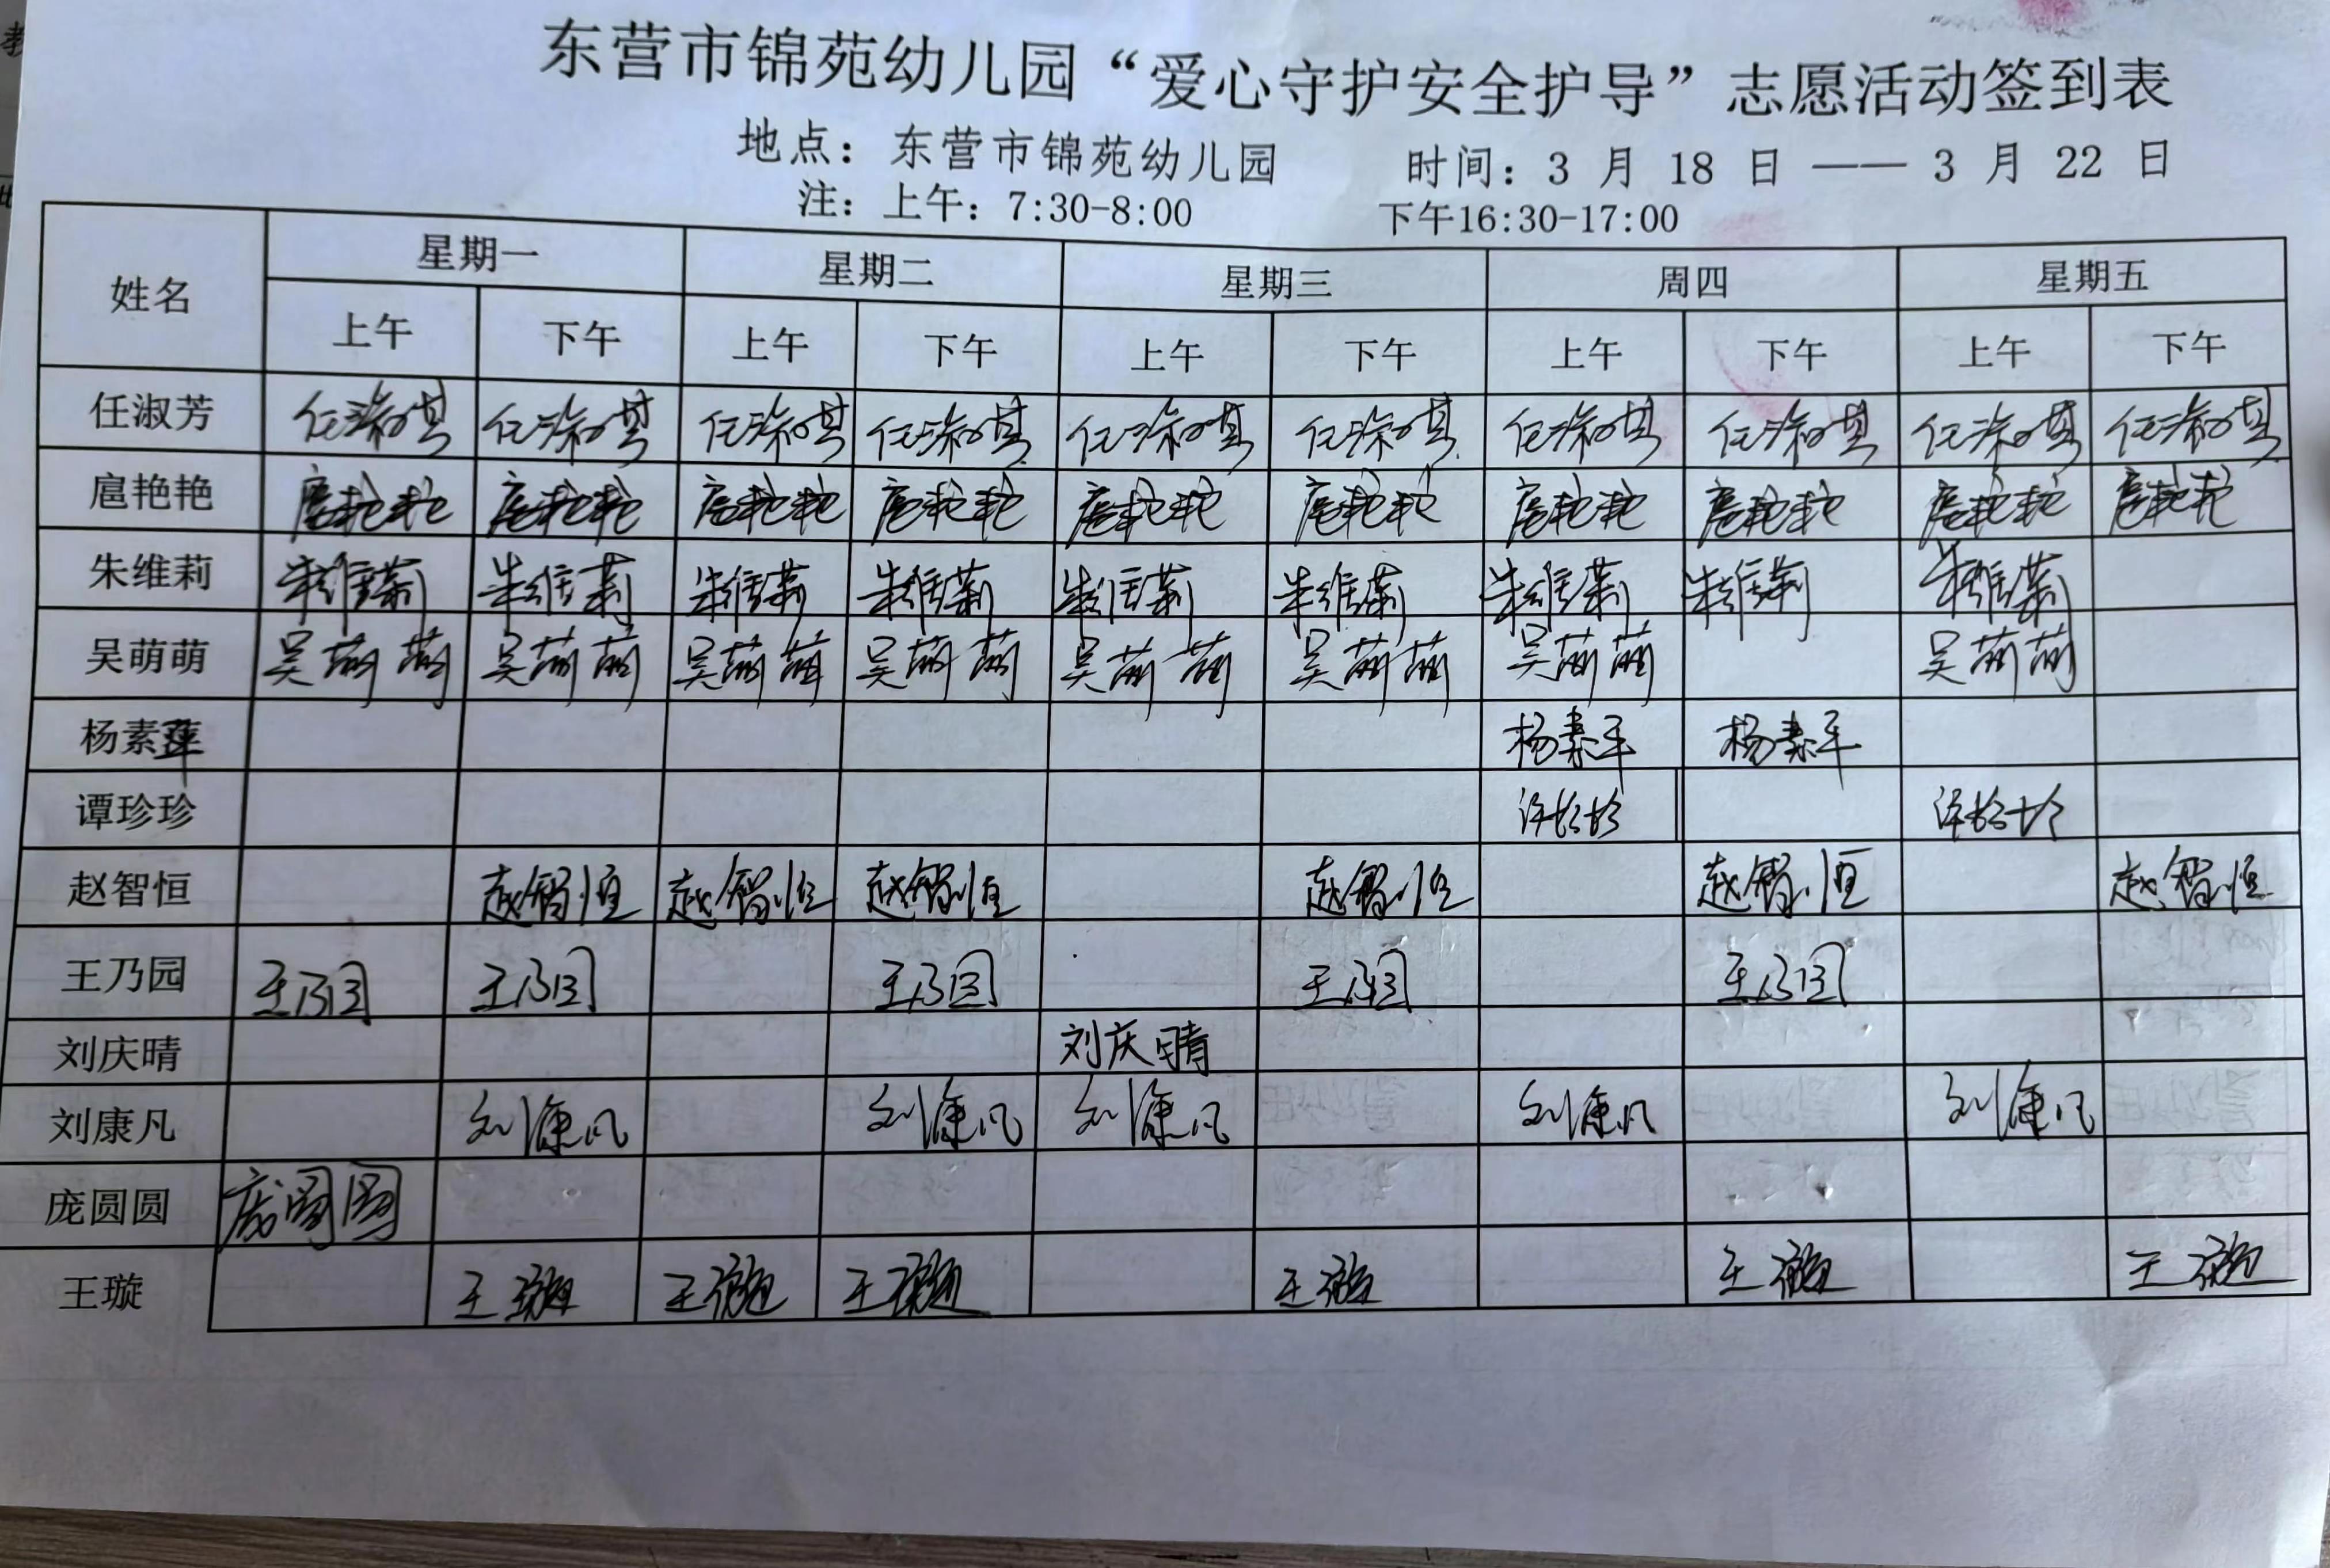 东营市锦苑幼儿园“爱心守护安全护导”志愿活动签到表
地点：东营市锦苑幼儿园 时间：3 月 18 日 —— 3 月 22 日
注：上午：7:30-8:00 下午16:30-17:00
姓名 星期一 星期二 星期三 周四 星期五
上午 下午 上午 下午 上午 下午 上午 下午 上午 下午
任淑芳 任淑芳 任淑芳 任淑芳 任淑芳 任淑芳 任淑芳 任淑芳 任淑芳 任淑芳 任淑芳
扈艳艳 扈艳艳 扈艳艳 扈艳艳 扈艳艳 扈艳艳 扈艳艳 扈艳艳 扈艳艳 扈艳艳 扈艳艳
朱维莉 朱维莉 朱维莉 朱维莉 朱维莉 朱维莉 朱维莉 朱维莉 朱维莉 朱维莉
吴萌萌 吴萌萌 吴萌萌 吴萌萌 吴萌萌 吴萌萌 吴萌萌 吴萌萌 吴萌萌
杨素平 杨素平 杨素平
谭珍珍 谭珍珍 谭珍珍
赵智恒 赵智恒 赵智恒 赵智恒 赵智恒 赵智恒 赵智恒
王乃园 王乃园 王乃园 王乃园 王乃园 王乃园
刘庆晴 刘庆晴
刘康凡 刘康凡 刘康凡 刘康凡 刘康凡 刘康凡
庞圆圆 庞圆圆
王璇 王璇 王璇 王璇 王璇 王璇 王璇